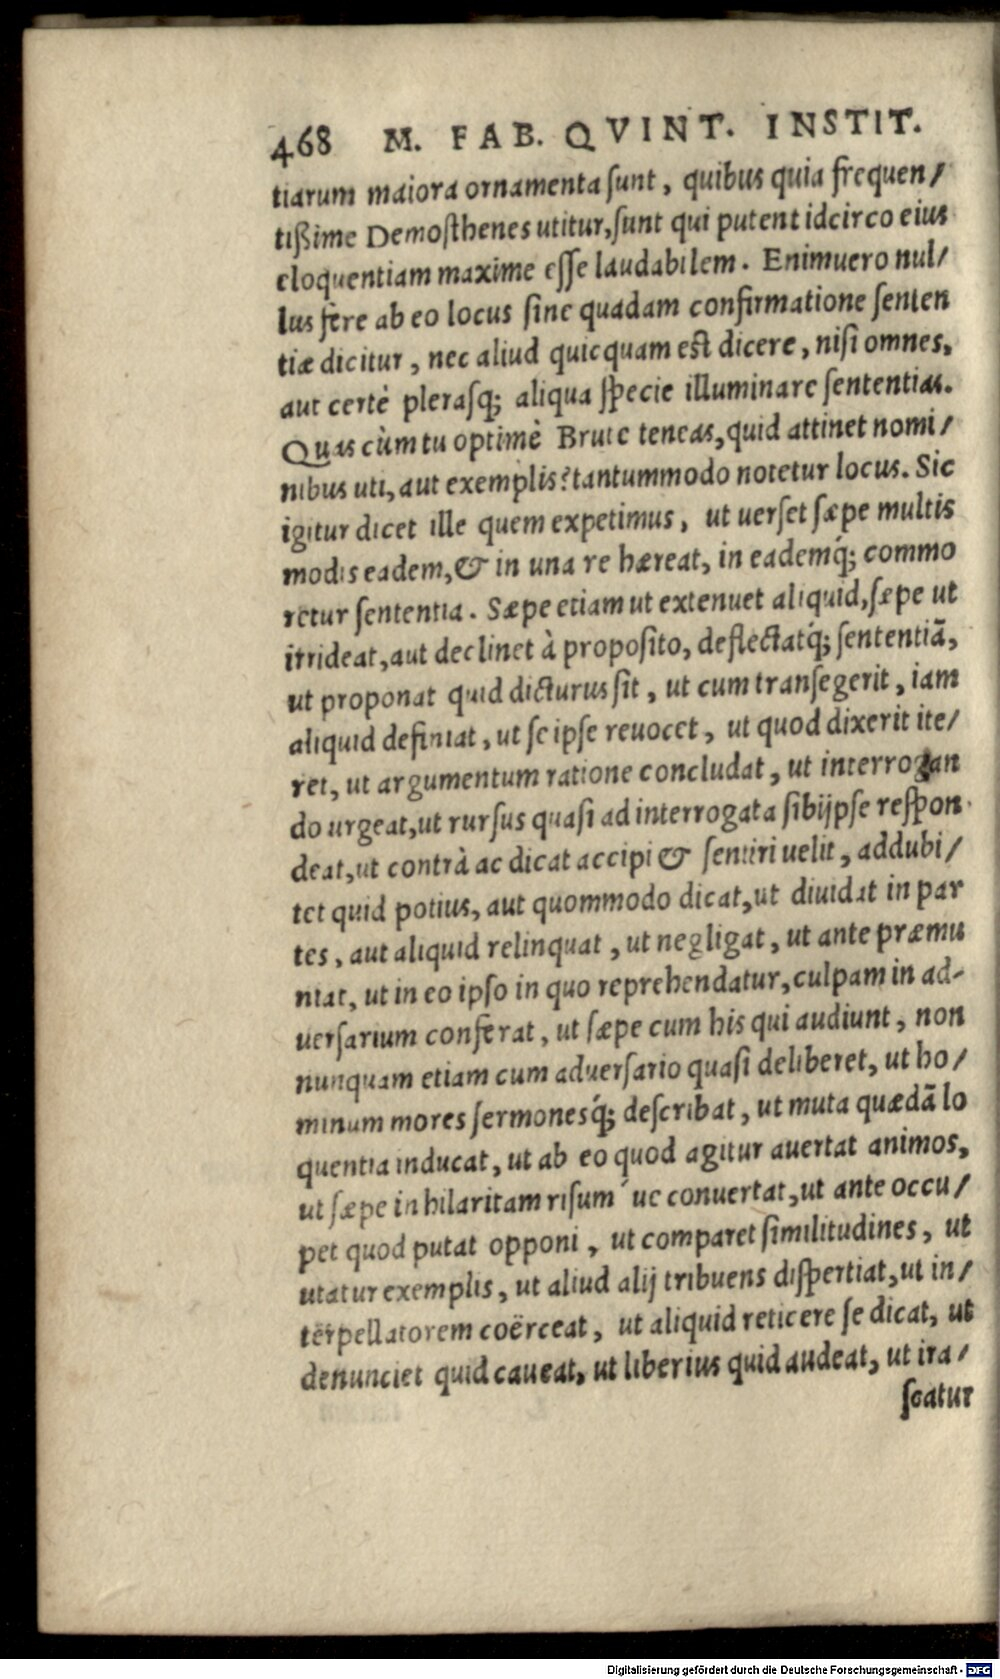 468 M. FAB. QVINT. INSTIT.
tiarum maiora ornamenta ſunt, quibus quia frequen/
tißime Demoſthenes utitur, ſunt qui putent idcirco eius
eloquentiam maxime eſſe laudabilem. Enimuero nul/
lus fere ab eo locus ſine quadam confirmatione ſenten
tiæ dicitur, nec aliud quicquam eſt dicere, niſi omnes,
aut certè pleraſq; aliqua ſpecie illuminare ſententias.
Quas cùm tu optimè Brute teneas, quid attinet nomi/
nibus uti, aut exemplis? tantummodo notetur locus. Sic
igitur dicet ille quem expetimus, ut uerſet ſæpe multis
modis eadem, & in una re hæreat, in eademq́; commo
retur ſententia. Sæpe etiam ut extenuet aliquid, ſæpe ut
irrideat, aut declinet à propoſito, deflectatq́; ſententiã,
ut proponat quid dicturus ſit, ut cum tranſegerit, iam
aliquid definiat, ut ſe ipſe reuocet, ut quod dixerit ite/
ret, ut argumentum ratione concludat, ut interrogan
do urgeat, ut rurſus quaſi ad interrogata ſibijpſe reſpon
deat, ut contrà ac dicat accipi & ſentiri uelit, addubi/
tet quid potius, aut quommodo dicat, ut diuidat in par
tes, aut aliquid relinquat, ut negligat, ut ante præmu
niat, ut in eo ipſo in quo reprehendatur, culpam in ad-
uerſarium conferat, ut ſæpe cum his qui audiunt, non
nunquam etiam cum aduerſario quaſi deliberet, ut ho/
minum mores ſermoneſq́; deſcribat, ut muta quædã lo
quentia inducat, ut ab eo quod agitur auertat animos,
ut ſæpe in hilaritam riſum ́ ue conuertat, ut ante occu/
pet quod putat opponi, ut comparet ſimilitudines, ut
utatur exemplis, ut aliud alij tribuens diſpertiat, ut in/
terpellatorem coërceat, ut aliquid reticere ſe dicat, ut
denunciet quid caueat, ut liberius quid audeat, ut ira/
ſcatur
Digitalisierung gefördert durch die Deutsche Forschungsgemeinschaft - DFG